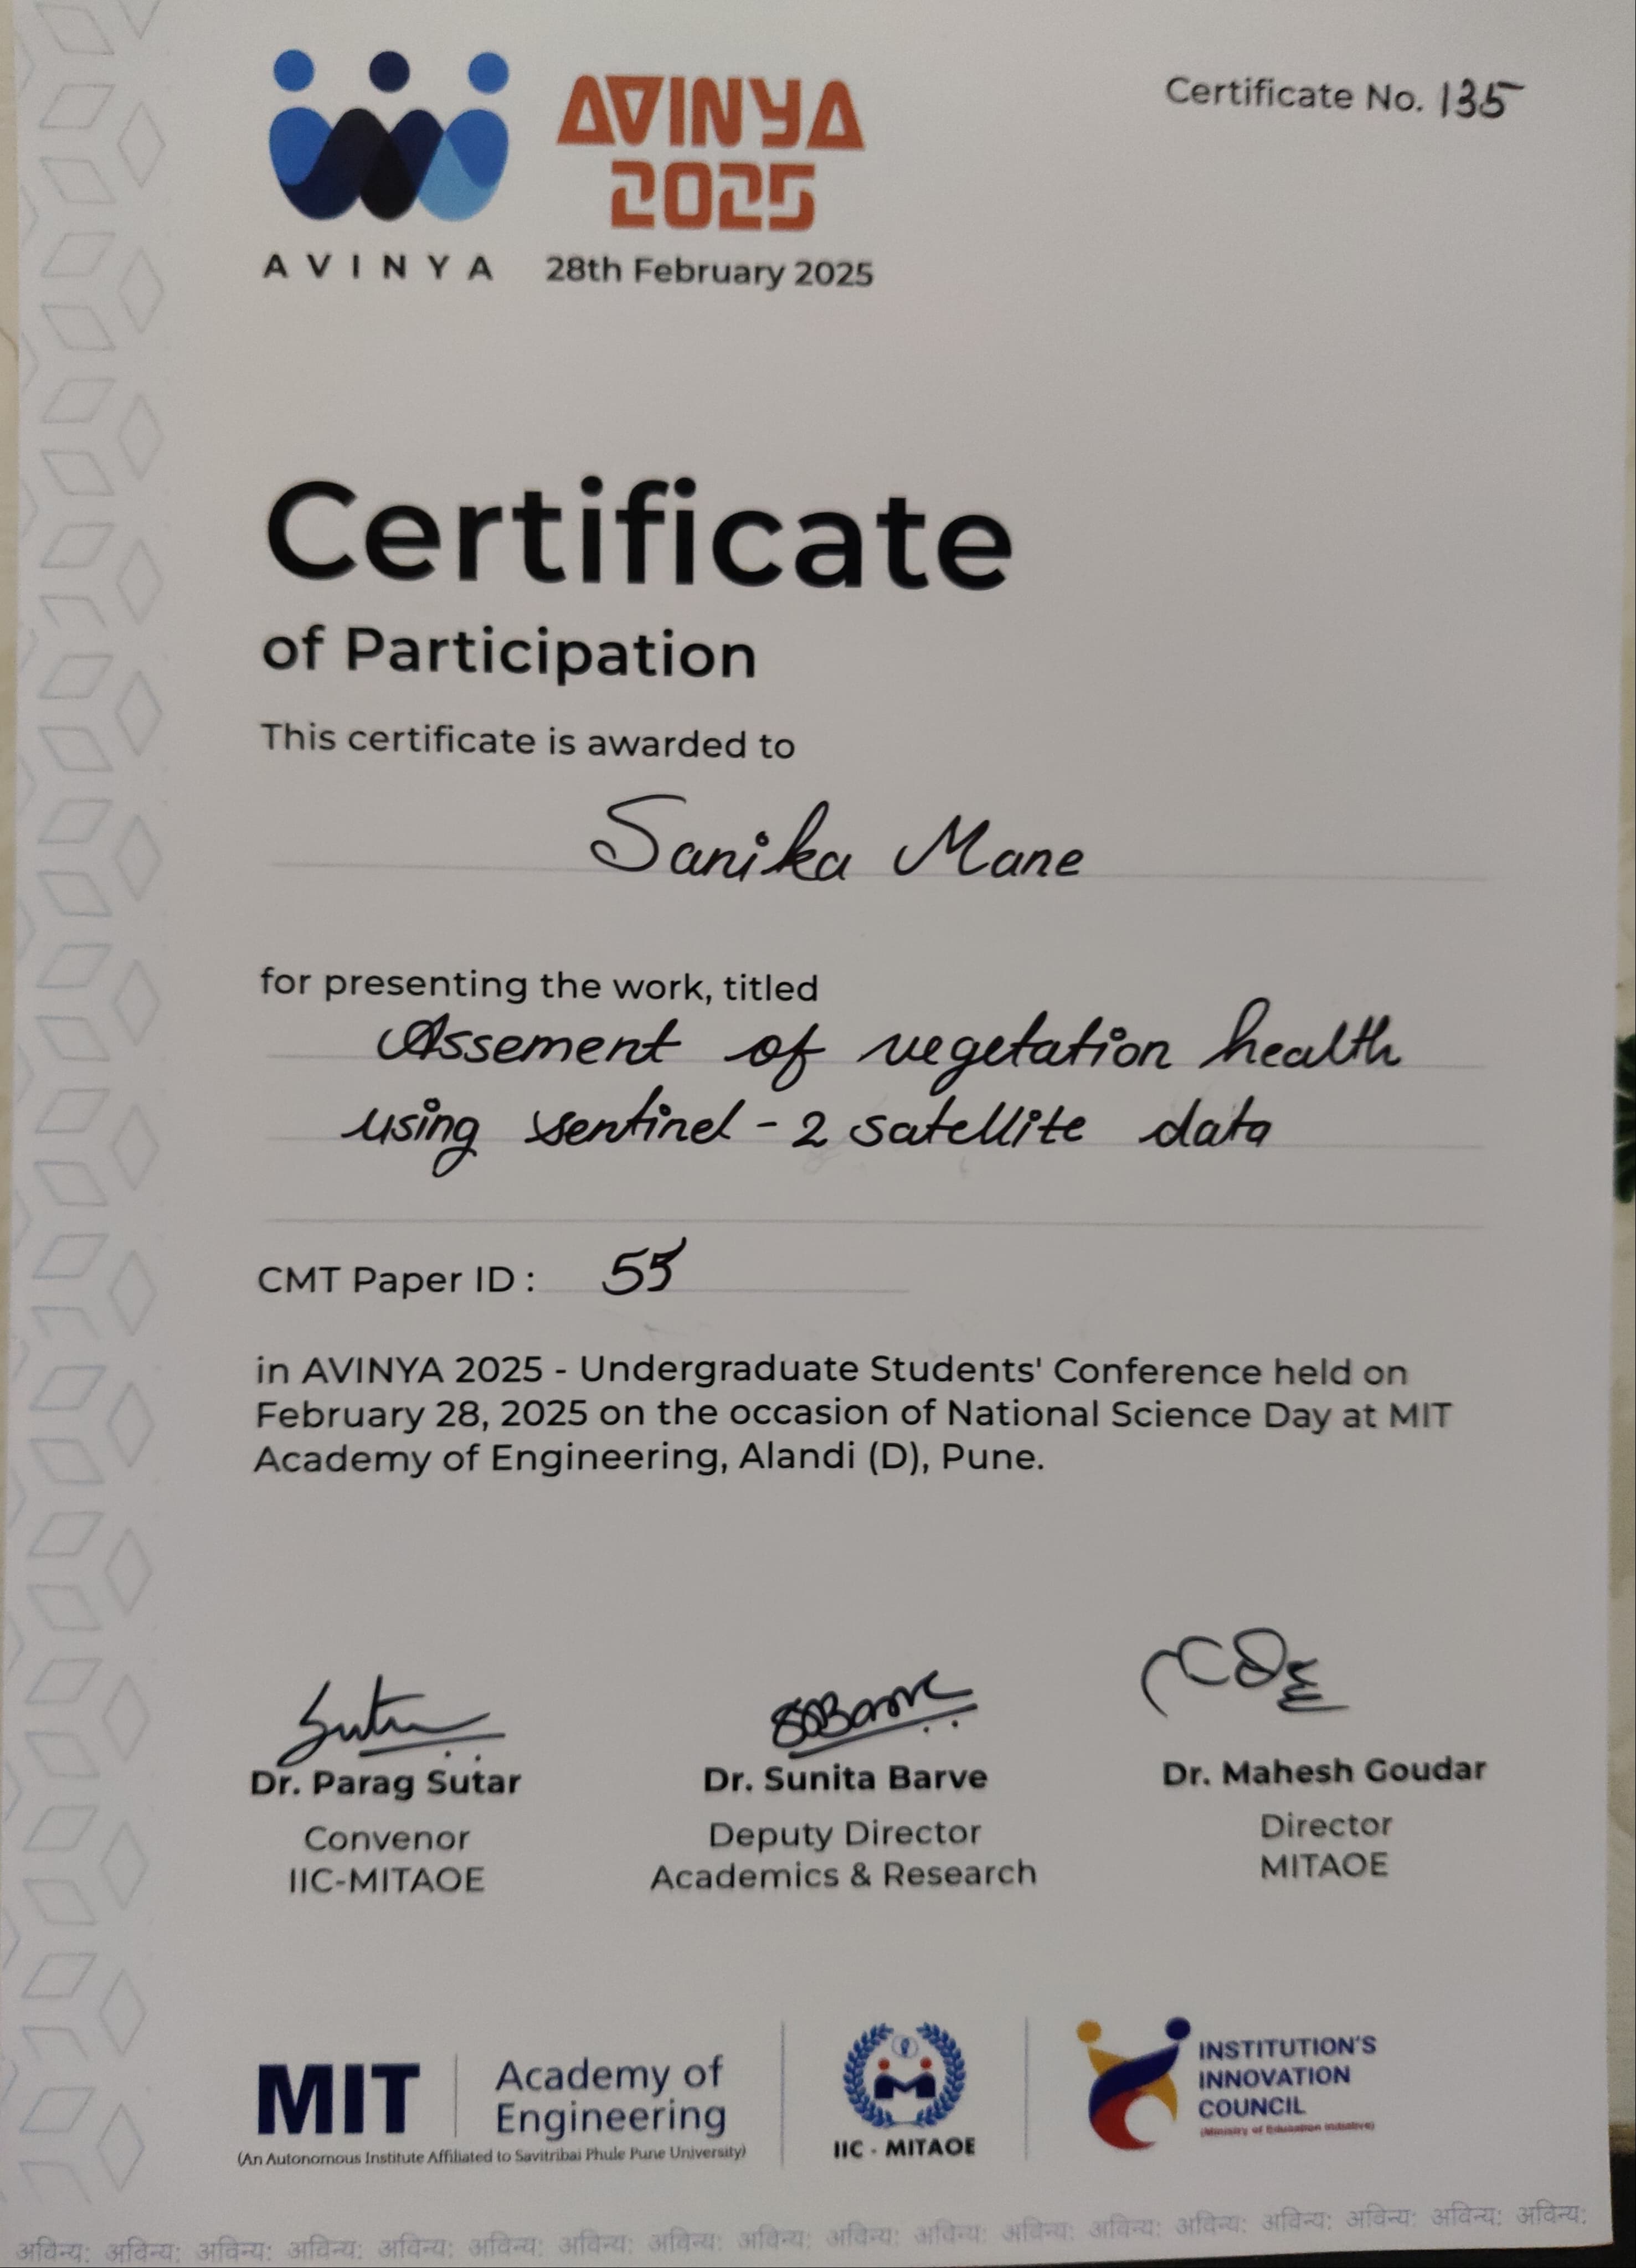 AVINYA
2025
Certificate No. 135
AVINYA
28th February 2025
Certificate
of Participation
This certificate is awarded to
Sanika Mane
for presenting the work, titled
Assement of vegetation health
using sentinel - 2 satellite data
CMT Paper ID : 55
in AVINYA 2025 - Undergraduate Students' Conference held on
February 28, 2025 on the occasion of National Science Day at MIT
Academy of Engineering, Alandi (D), Pune.
Dr. Parag Sutar
Convenor
IIC-MITAOE
Dr. Sunita Barve
Deputy Director
Academics & Research
Dr. Mahesh Goudar
Director
MITAOE
MIT
Academy of
Engineering
(An Autonomous Institute Affiliated to Savitribai Phule Pune University)
IIC - MITAOE
INSTITUTION'S
INNOVATION
COUNCIL
(Ministry of Education Initiative)
अविन्य: अविन्य: अविन्य: अविन्य: अविन्य: अविन्य: अविन्य: अविन्य: अविन्य: अविन्य: अविन्य: अविन्य: अविन्य: अविन्य: अविन्य: अविन्य: अविन्य: अविन्य: